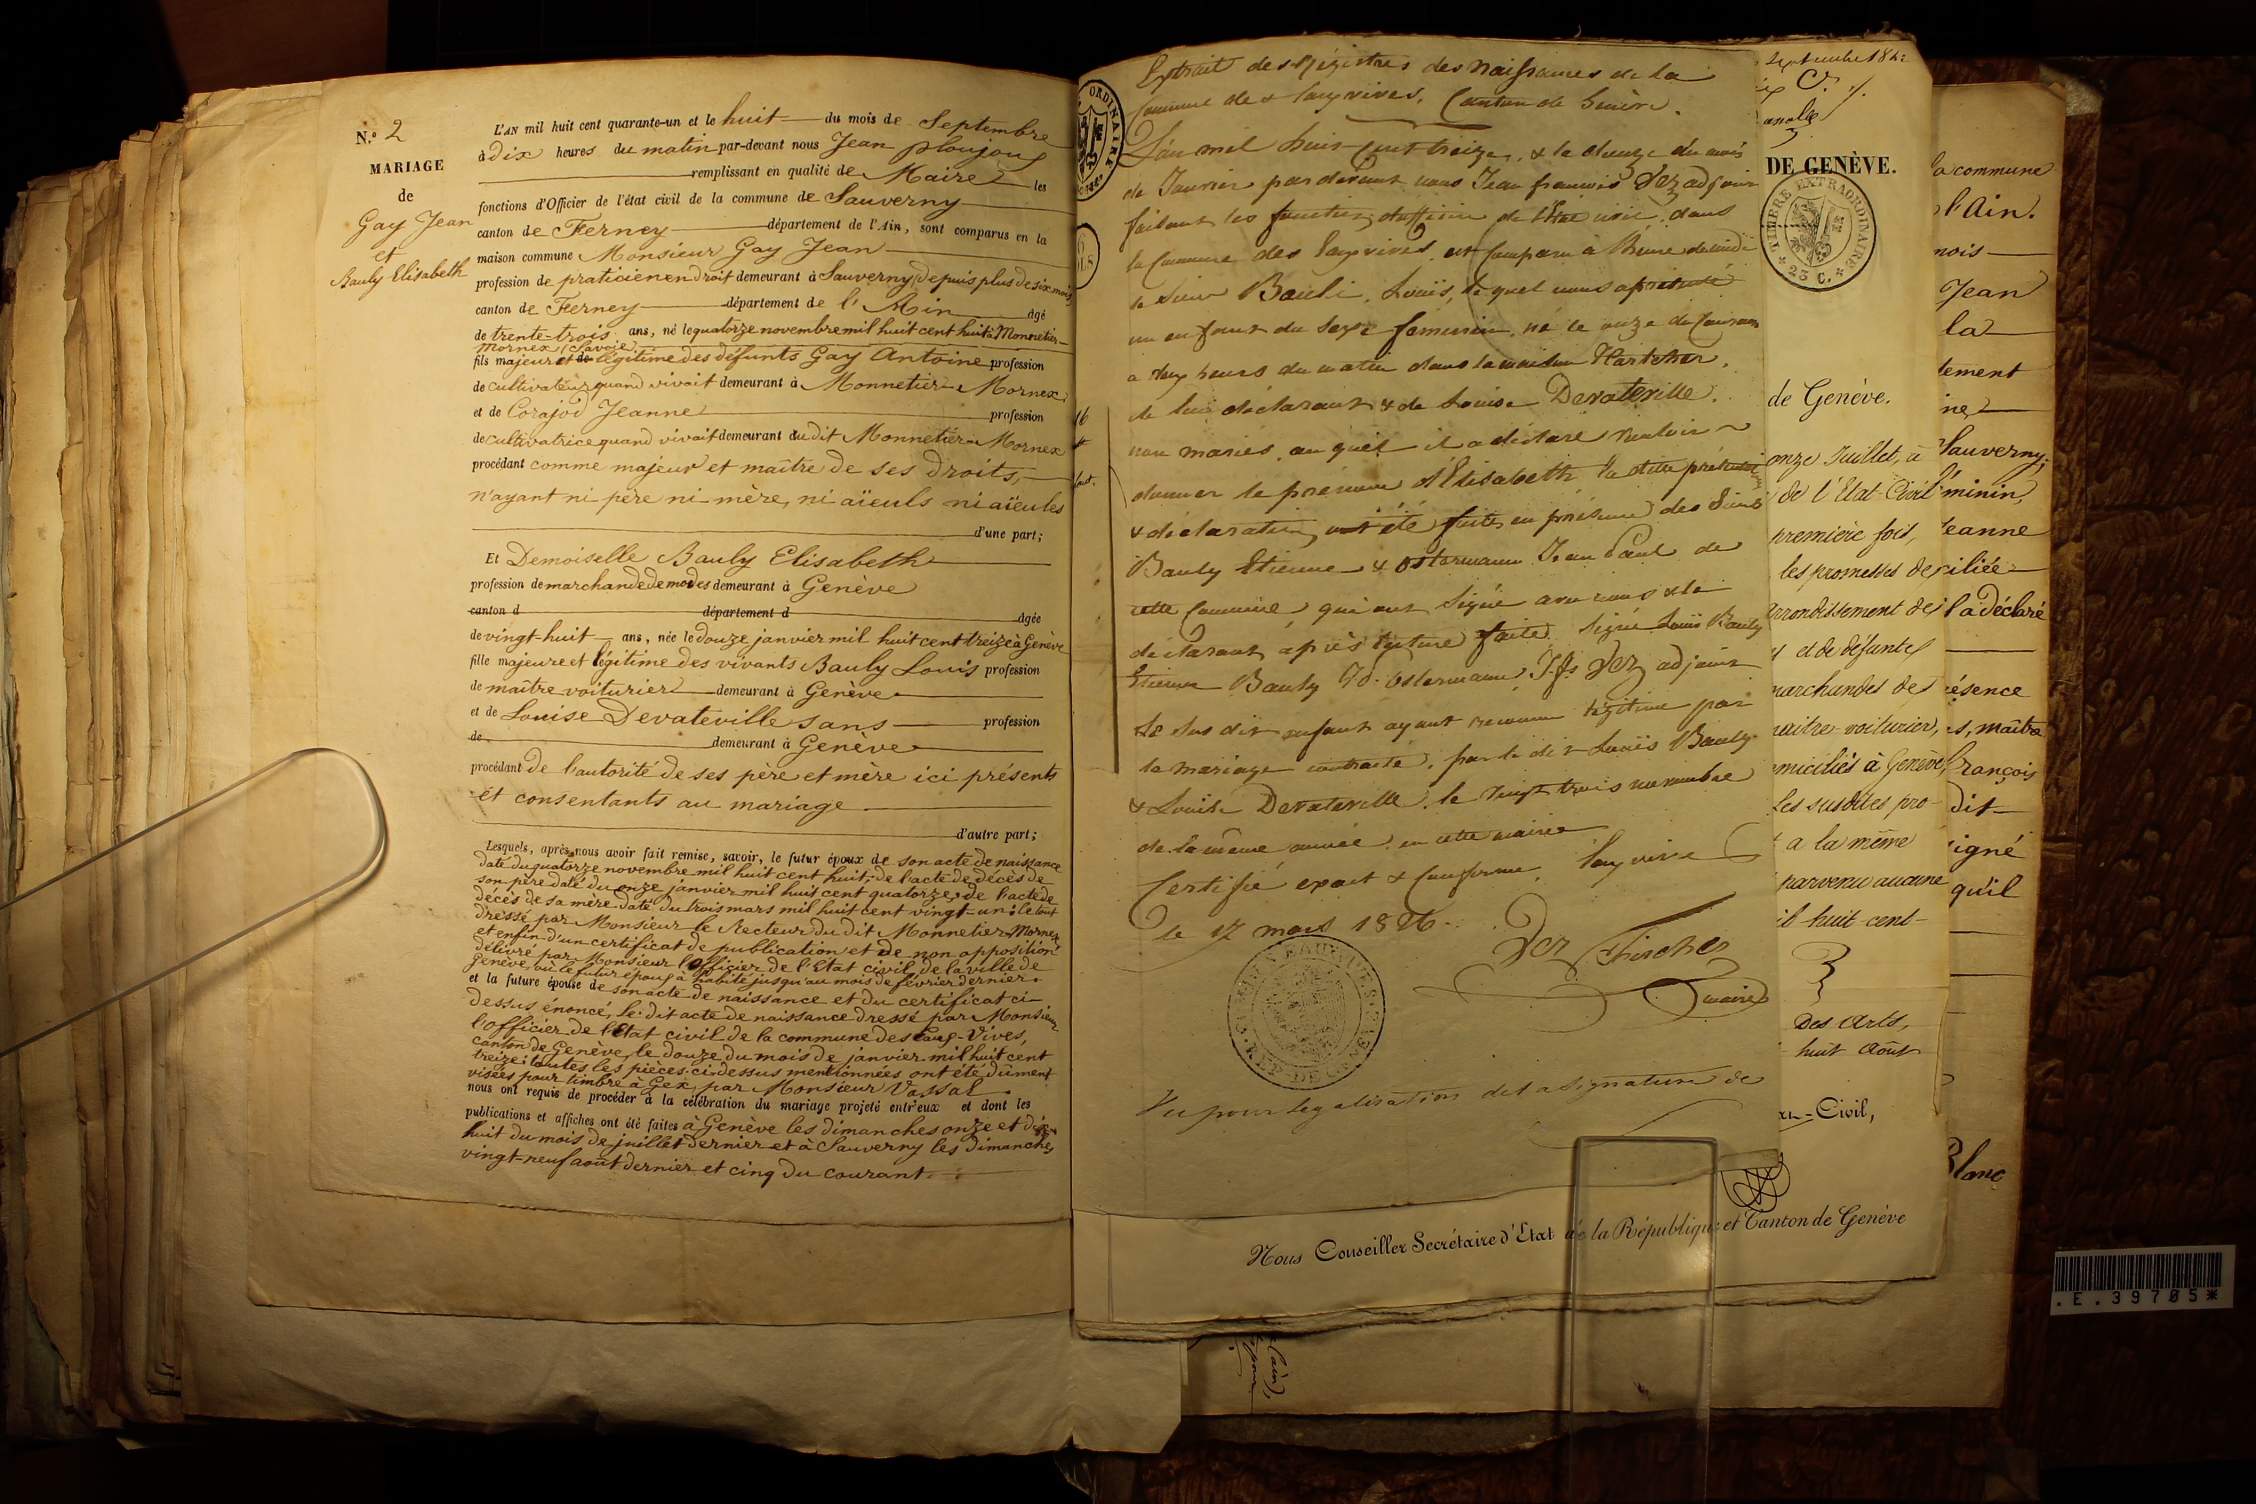 N.º 2
MARIAGE
de
Gay Jean
et
Bauly Elisabeth
L'AN mil huit cent quarante-un et le huit du mois de Septembre
à dix heures du matin par-devant nous Jean
remplissant en qualité de Maire les
fonctions d'Officier de l'état civil de la commune de Sauverny
canton de Ferney département de l'Ain, sont comparus en la
maison commune Monsieur Gay Jean
profession de praticien en droit demeurant à Sauverny, depuis plus de six mois,
canton de Ferney département de l'Ain âgé
de trente-trois ans, né le quatorze novembre mil huit cent huit à Monnetier-
Mornex (Savoie)
fils majeur et légitime des défunts Gay Antoine profession
de cultivateur quand vivait demeurant à Monnetier-Mornex
et de Corajod Jeanne profession
de cultivatrice quand vivait demeurant au dit Monnetier-Mornex
procédant comme majeur et maître de ses droits,
n'ayant ni père ni mère, ni aïeuls ni aïeules
d'une part;
Et Demoiselle Bauly Elisabeth
profession de marchande de modes demeurant à Genève
canton d département d âgée
de vingt-huit ans, née le douze janvier mil huit cent treize à Genève
fille majeure et légitime des vivants Bauly Louis profession
de maître voiturier demeurant à Genève
et de Louise Devateville sans profession
de demeurant à Genève
procédant de l'autorité de ses père et mère ici présents
et consentants au mariage
d'autre part;
Lesquels, après nous avoir fait remise, savoir, le futur époux de son acte de naissance
daté du quatorze novembre mil huit cent huit; de l'acte de décès de
son père daté du onze janvier mil huit cent quatorze; de l'acte de
décès de sa mère daté du trois mars mil huit cent vingt-un; le tout
dressé par Monsieur le Recteur du dit Monnetier-Mornex,
et enfin d'un certificat de publication et de non opposition
délivré par Monsieur l'Officier de l'Etat civil de la ville de
Genève, où le futur époux a habité jusqu'au mois de février dernier.
et la future épouse de son acte de naissance et du certificat ci-
dessus énoncé, le dit acte de naissance dressé par Monsieur
l'officier de l'Etat civil de la commune des Eaux-Vives,
canton de Genève, le douze du mois de janvier mil huit cent
treize: toutes les pièces ci-dessus mentionnées ont été dûment
visées pour timbre à Gex par Monsieur Vassal
nous ont requis de procéder à la célébration du mariage projeté entr'eux et dont les
publications et affiches ont été faites à Genève les dimanches onze et dix-
huit du mois de juillet dernier et à Sauverny les dimanches
vingt-neuf août dernier et cinq du courant.
Extrait des Régistres des Naissances de la
Commune de Eauxvives, Canton de Genève.
L'an mil huit cent treize, & le douze du mois
de Janvier par devant nous Jean françois Dez adjoint
faisant les fonctions d'officier de l'Etat civil, dans
la Commune des Eauxvives, est comparu à l'heure de midi
le Sieur Bauli, Louis, lequel nous a présenté
un enfant du Sexe feminin, né le onze de Janvier
à deux heures du matin dans la maison
de lui déclarant & de Louise Devateville,
non mariés, auquel il a déclaré vouloir
donner le prénom d'Elisabeth la dite présentation
& déclaration ont été faites en présence des Sieurs
Bauly Etienne & Ostermann Jean Paul de
cette Commune, qui ont signé avec nous & le
déclarant après lecture faite. Signé Louis Bauly
Etienne Bauly Ostermann, Dez adjoint
Le sus dit enfant ayant reconnu légitime par
le mariage contracté, par le dit Louis Bauly
& Louise Devateville, le vingt trois novembre
de la même année, en cette mairie
Certifié exact & Conforme. Eauxvives
le 17 mars 1826.
Dez Fircher
maire
Vu pour légalisation de la Signature de
Nous Conseiller Secrétaire d'Etat de la République et Canton de Genève
ORDINAIRE
TIMBRE EXTRAORDINAIRE
23 C.
DE GENÈVE.
de Genève.
onze Juillet, à
de l'Etat Civil
première fois,
les promesses de
arrondissement de
et de défunte
marchandes de
maître-voiturier,
domiciliés à Genève,
Les susdites pro-
a la même
parvenu aucune
mil huit-cent-
Des Arts,
huit Août
-Civil,
la commune
l'Ain.
mois
Jean
la
Sauverny;
féminin,
Jeanne
la déclaré
présence
maître
François
dit
signé
qu'il
Blanc
.E.39705*